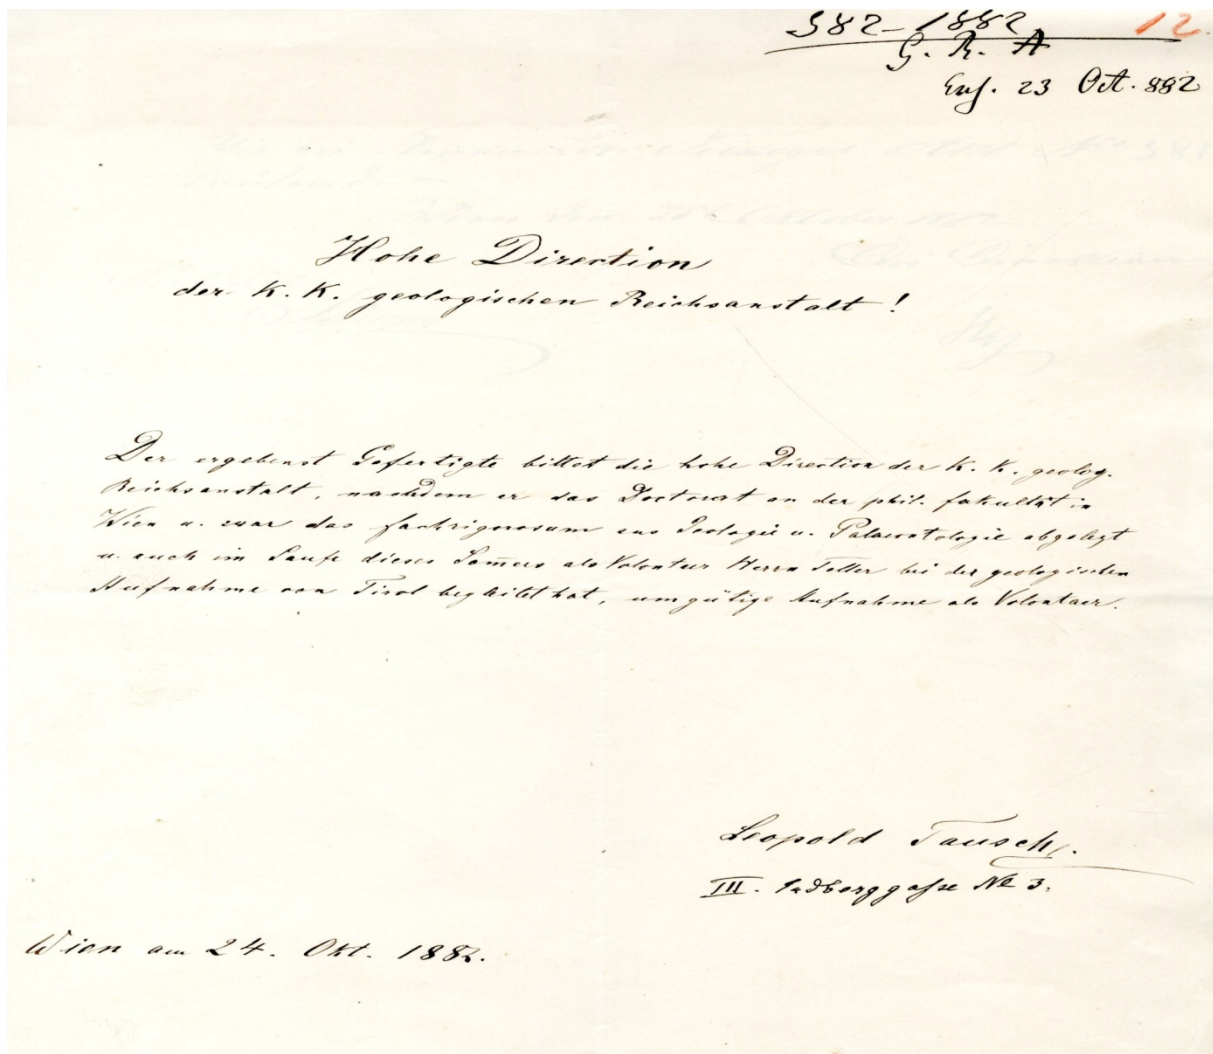 582-1882 12.
G. R. A
Ein. 23 Oct. 882
Hohe Direction
der K. K. geologischen Reichsanstalt!
Der ergebenst Gefertigte bittet die hohe Direction der K. K. geolog.
Reichsanstalt, nachdem er das Doctorat an der phil. Fakultät in
Wien u. zwar das Fachrigorosum aus Geologie u. Palaeontologie abgelegt
u. auch im Laufe dieses Som̄ers als Volontär Herrn Teller bei der geologischen
Aufnahme von Tirol begleitet hat, um gütige Aufnahme als Volontaer.
Leopold Tausch.
III. No 3.
Wien am 24. Okt. 1882.